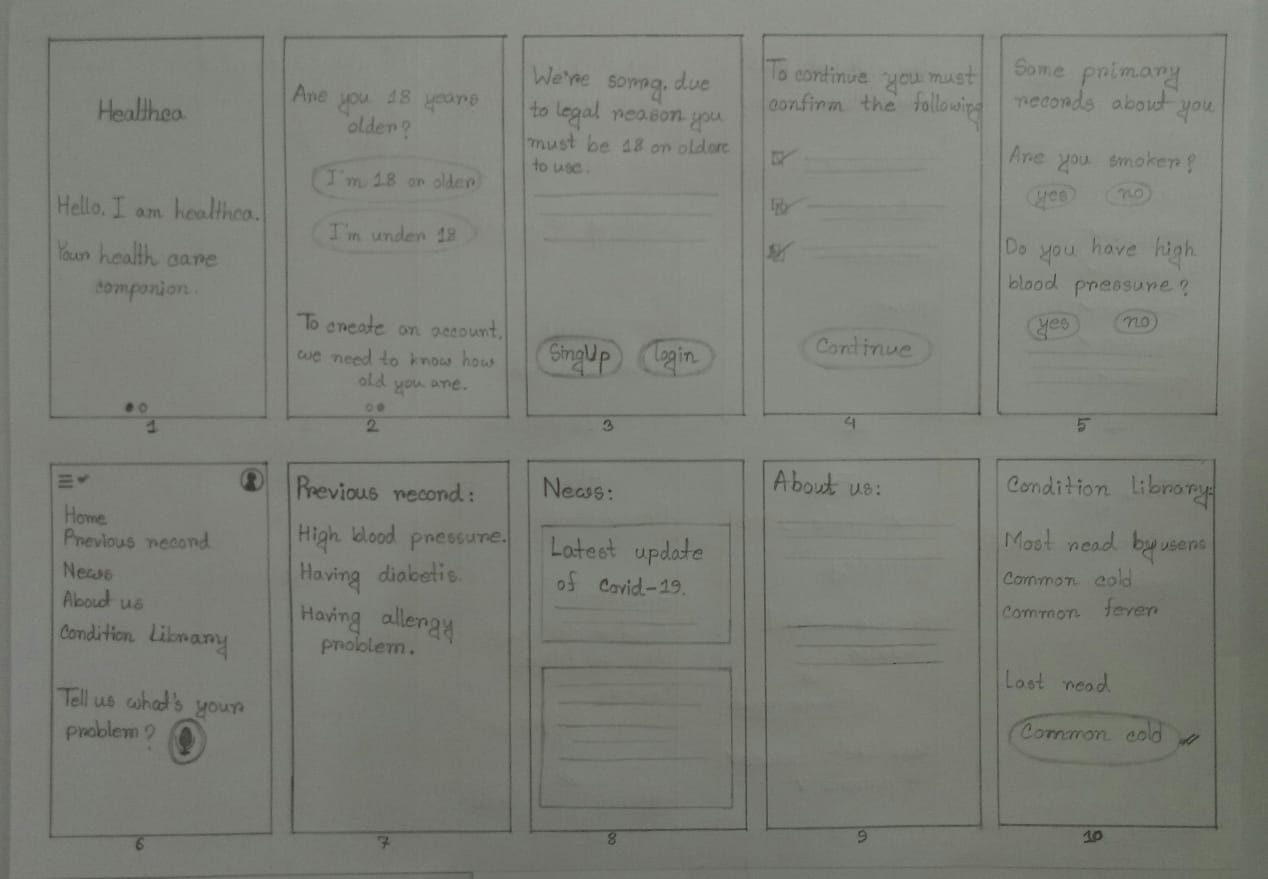 Healthca
Hello, I am healthca.
Your health care
companion.
1
Are you 18 years
older?
I'm 18 or older
I'm under 18
To create an account,
we need to know how
old you are.
2
We're sorry, due
to legal reason you
must be 18 or older
to use.
SingUp
login
3
To continue you must
confirm the following
Continue
4
Some primary
records about you
Are you smoker?
yes no
Do you have high
blood pressure?
yes no
5
Home
Previous record
News
About us
Condition Library
Tell us what's your
problem?
6
Previous record:
High blood pressure.
Having diabetis.
Having allergy
problem.
7
News:
Latest update
of Covid-19.
8
About us:
9
Condition Library:
Most read by users
Common cold
common fever
Last read
Common cold
10